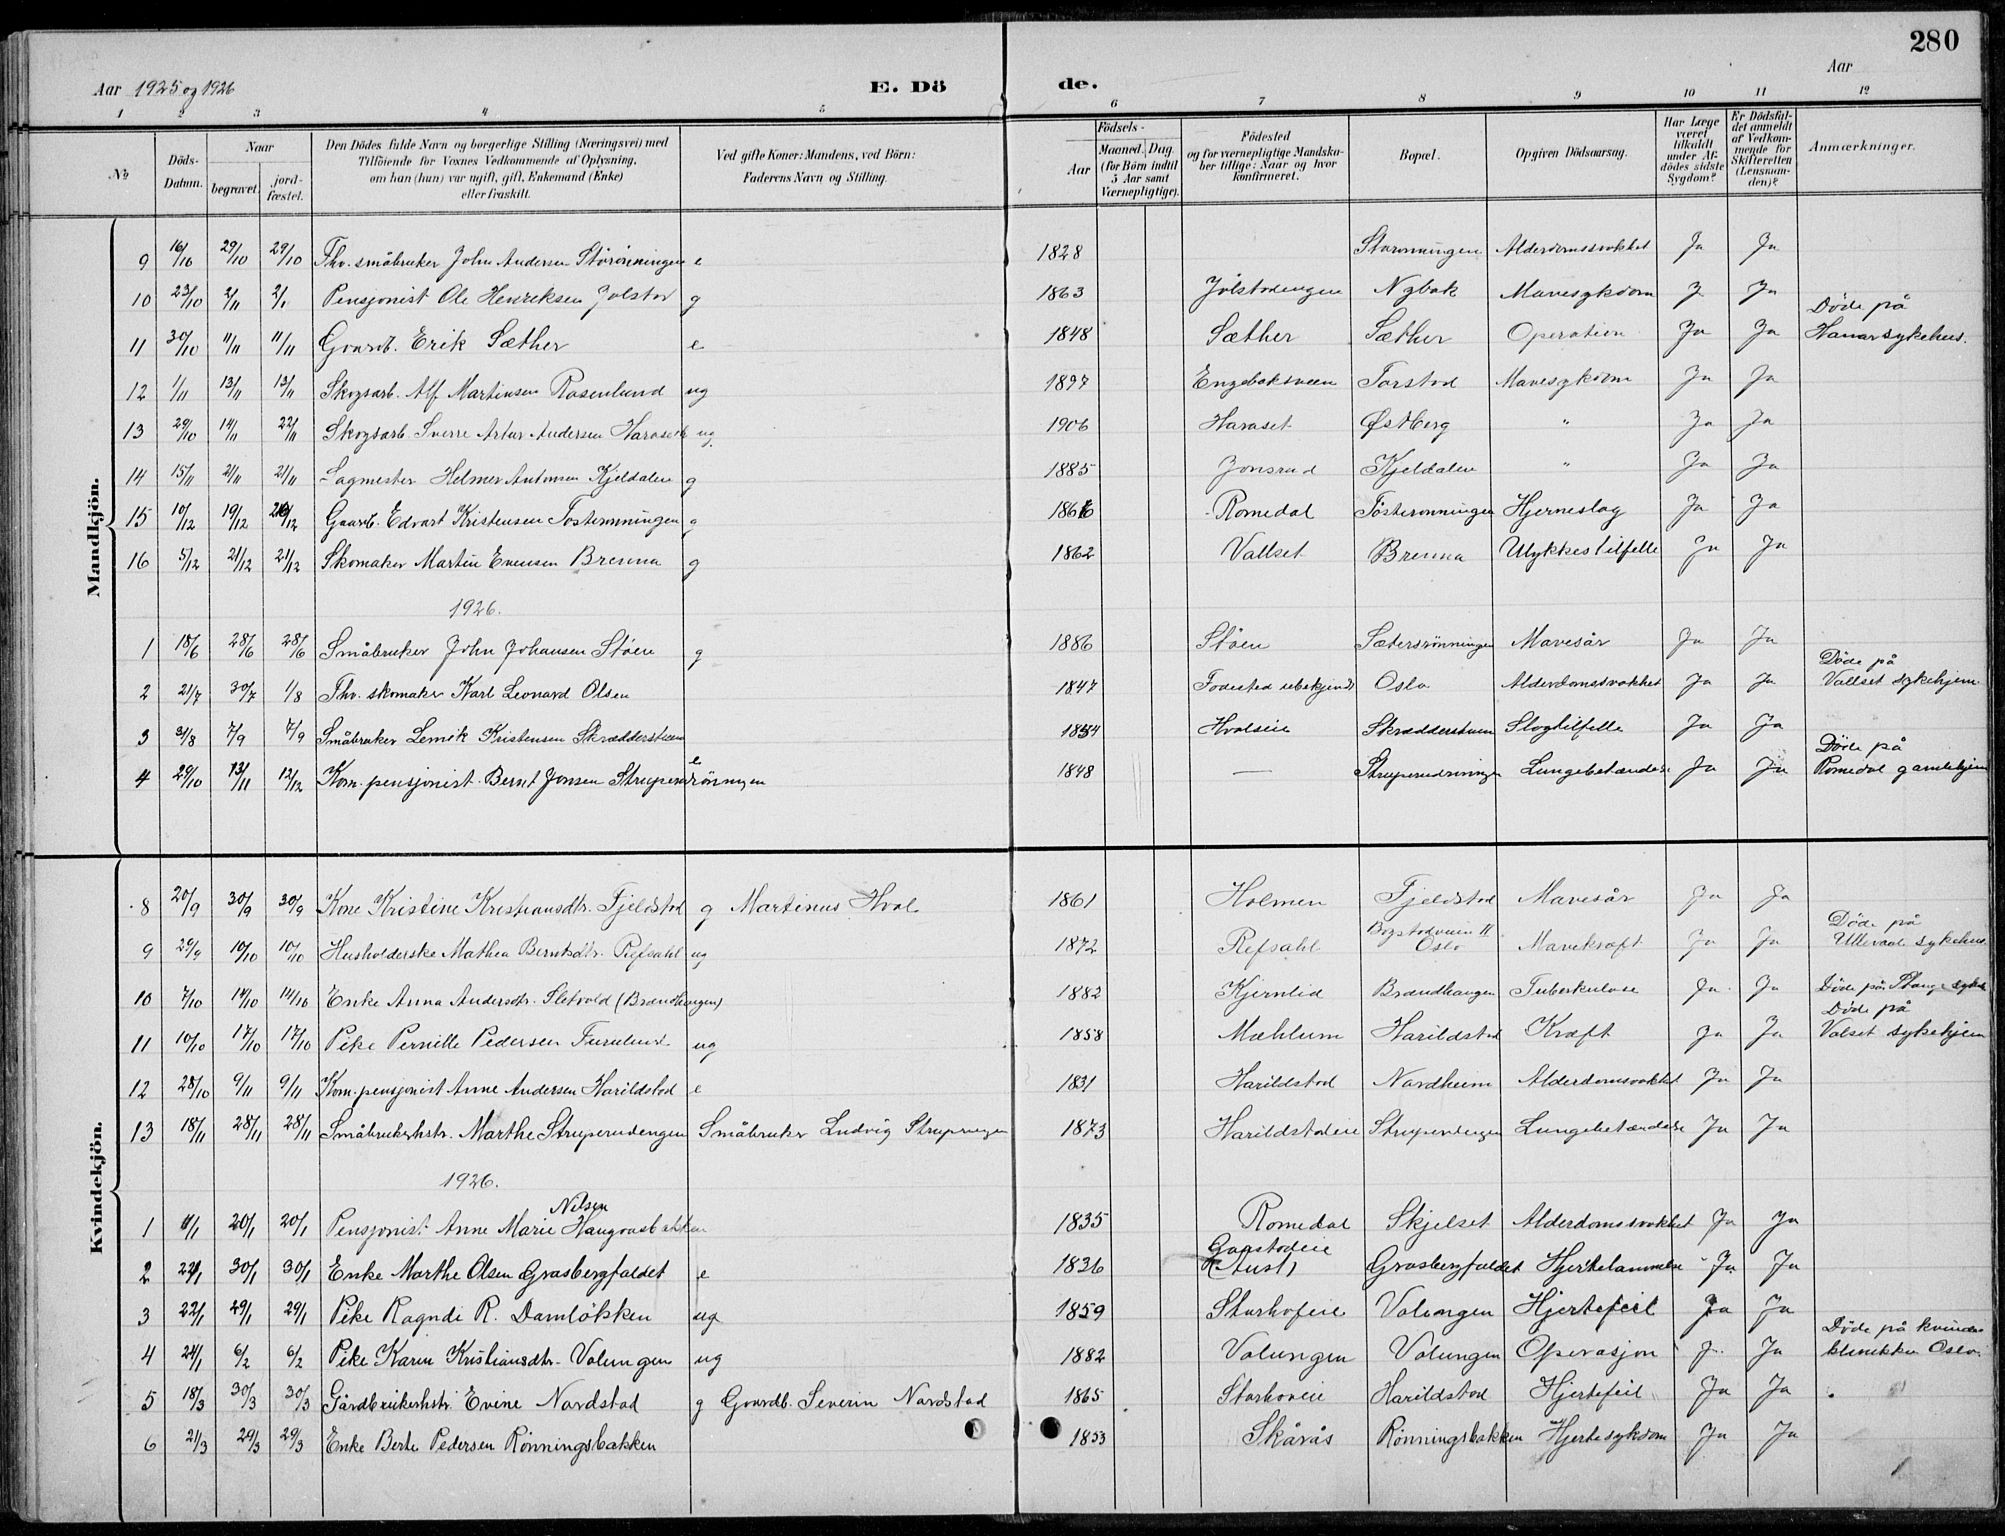 280
Aar 1925 og 1926 E. Dö de. Aar
1 2 3 4 5 6 7 8 9 10 11 12
No Döds-Datum. Naar begravet. jord-fæstet. Den Dödes fulde Navn og borgerlige Stilling (Næringsvei) med Tilföiende for Voxnes Vedkommende af Oplysning, om han (hun) var ugift, gift, Enkemand (Enke) eller fraskilt. Ved gifte Koner: Mandens, ved Börn: Faderens Navn og Stilling. Födsels- Aar Maaned. Dag. (for Börn indtil 5 Aar samt Værnepligtige). Födested og for værnepligtige Mandskaber tillige: Naar og hvor konfirmeret. Bopæl. Opgiven Dödsaarsag. Har Læge været tilkaldt under Afdödes sidste Sygdom? Er Dödsfaldet anmeldt af Vedkommende for Skifteretten (Lensmanden)? Anmærkninger.
Mandkjön.
9 16/10 29/10 29/10 Fhv. småbruker John Andersen Störöningen e 1828 Storönningen Alderdomssvakhet Ja Ja
10 23/10 2/11 2/11 Pensjonist Ole Henriksen Jölstad g 1863 Jölstadengen Nybak Mavesykdom Ja Ja
11 30/10 11/11 11/11 Gaardb. Erik Sæther e 1848 Sæther Sæther Operation Ja Ja Döde på Hamar sykehus.
12 1/11 13/11 13/11 Skogsarb. Alf Martinsen Rosenlund ug 1897 Engebaksveen Torstad Mavesykdom Ja Ja
13 29/10 14/11 22/11 Skogsarb. Sverre Artur Andersen Haraset ug. 1906 Haraset Østberg " Ja Ja
14 15/11 21/11 21/11 Sagmester Helmer Antonsen Kjeldalen g 1885 Jonsrud Kjeldalen " Ja Ja
15 10/12 19/12 20/12 Gaardb. Edvart Kristensen Tosterönningen g 1866 Romedal Tosterönningen Hjerneslag Ja Ja
16 5/12 21/12 21/12 Skomaker Martin Evensen Brenna g 1862 Vallset Brenna Ulykkestilfelle Ja Ja
1926.
1 18/6 28/6 28/6 Småbruker John Johansen Stöen g 1886 Stöen Sætersrönningen Mavesår Ja Ja
2 21/7 30/7 1/8 Fhv. skomaker Karl Leonard Olsen 1847 Fodested ubekjendt Oslo Alderdomssvakhet Ja Ja Döde på Vallset sykehjem
3 31/8 7/9 7/9 Småbruker Lemik Kristensen Skrædderstuen 1854 Hvalseie Skrædderstuen Slagtilfelle Ja Ja
4 29/10 13/11 12/12 Kom. pensjonist Bernt Jonsen Struperudrönningen e 1848 — Struperudrönningen Lungebetændelse Ja Ja Döde på Romedal gamlehjem
Kvindekjön.
8 20/9 30/9 30/9 Kone Kristine Kristiansdtr. Fjeldstad g Martinus Hval 1861 Holmen Fjeldstad Mavesår Ja Ja
9 29/9 10/10 10/10 Husholderske Mathea Berntsdtr. Refsahl ug 1872 Refsahl Bogstadveien 11 Oslo Mavekræft Ja Ja Döde på Ullevaal sykehus
10 7/10 14/10 14/10 Enke Anna Andersdtr. Sletvold (Brændhaugen) 1882 Kjernlid Brændhaugen Tuberkulose Ja Ja Döde på Stange sykeh.
11 10/10 17/10 17/10 Pike Pernille Pedersen Furulund ug 1858 Mæhlum Harildstad Kræft Ja Ja Döde på Valset sykehjem
12 28/10 9/11 9/11 Kom. pensjonist Anne Andersen Harildstad e 1831 Harildstad Nordheim Alderdomssvakhet Ja Ja
13 18/11 28/11 28/11 Småbrukerhstr. Marthe Struperudengen Småbruker Ludvig Strupengen 1873 Harildstadeie Struperudengen Lungebetændelse Ja Ja
1926.
1 11/1 20/1 20/1 Pensjonist Anne Marie Nilsen Haugaasbakken 1835 Romedal Skjelset Alderdomssvakhet Ja Ja
2 22/1 30/1 30/1 Enke Marthe Olsen Grasbergfaldet e 1836 Gaustadeie Grasbergfaldet Hjertelammelse Ja Ja
3 22/1 29/1 29/1 Pike Ragndi R. Damlökken ug 1859 Storhofeie Volungen Hjertefeil Ja Ja
4 24/1 6/2 6/2 Pike Karin Kristiansdtr. Volungen ug 1882 Volungen Volungen Operasjon Ja Ja Döde på kvindeklinikken Oslo.
5 18/3 30/3 30/3 Gårdbrukerhstr. Evine Nordstad g Gaardb. Severin Nordstad 1865 Storhoveie Harildstad Hjertefeil Ja Ja
6 21/3 29/3 29/3 Enke Berte Pedersen Rönningsbakken 1853 Skårås Rönningsbakken Hjertesykdom Ja Ja